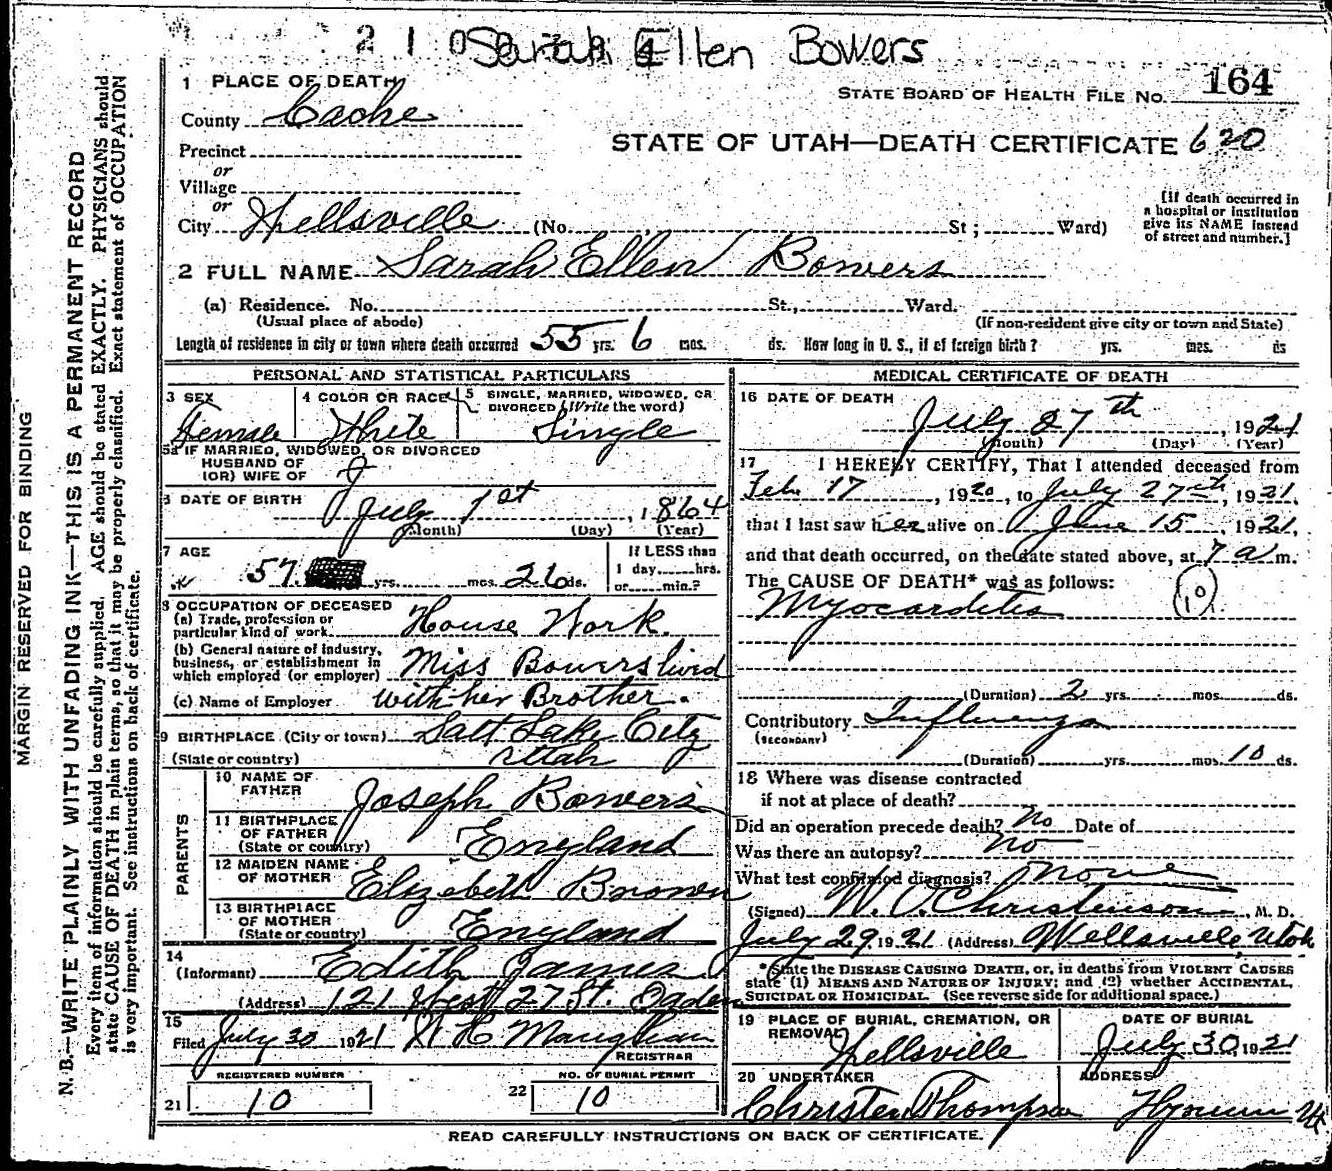 2 1 0 Sarah Ellen Bowers
1 PLACE OF DEATH
STATE BOARD OF HEALTH FILE NO. 164
County Cache
STATE OF UTAH—DEATH CERTIFICATE 620
Precinct
or
Village
or
City Wellsville (No. St; Ward)
[If death occurred in
a hospital or institution
give its NAME instead
of street and number.]
2 FULL NAME Sarah Ellen Bowers
(a) Residence. No. St., Ward.
(Usual place of abode) (If non-resident give city or town and State)
Length of residence in city or town where death occurred 55 yrs. 6 mos. ds. How long in U. S., if of foreign birth? yrs. mos. ds
PERSONAL AND STATISTICAL PARTICULARS
3 SEX 4 COLOR OR RACE 5 SINGLE, MARRIED, WIDOWED, OR
DIVORCED (Write the word)
Female White Single
5a IF MARRIED, WIDOWED, OR DIVORCED
HUSBAND OF
(OR) WIFE OF
6 DATE OF BIRTH
July 1st, 1864
(Month) (Day) (Year)
7 AGE If LESS than
57 yrs. mos. 26 ds. 1 day hrs.
or min.?
8 OCCUPATION OF DECEASED
(a) Trade, profession or
particular kind of work House Work.
(b) General nature of industry,
business, or establishment in
which employed (or employer) Miss Bowers lived
(c) Name of Employer with her Brother.
9 BIRTHPLACE (City or town) Salt Lake City
(State or country) Utah
PARENTS
10 NAME OF
FATHER Joseph Bowers
11 BIRTHPLACE
OF FATHER
(State or country) England
12 MAIDEN NAME
OF MOTHER Elizebeth Brown
13 BIRTHPLACE
OF MOTHER
(State or country) England
14
(Informant) Edith James
(Address) 121 West 27 St. Ogden
15
Filed July 30 1921 W H Maughan
REGISTRAR
REGISTERED NUMBER NO. OF BURIAL PERMIT
21 10 22 10
MEDICAL CERTIFICATE OF DEATH
16 DATE OF DEATH
July 27th, 1921
(Month) (Day) (Year)
17 I HEREBY CERTIFY, That I attended deceased from
Feb 17, 1920, to July 27th, 1921,
that I last saw her alive on June 15, 1921,
and that death occurred, on the date stated above, at 7 a m.
The CAUSE OF DEATH* was as follows:
Myocarditis 10
(Duration) 2 yrs. mos. ds.
Contributory Influenza
(SECONDARY)
(Duration) yrs. mos. 10 ds.
18 Where was disease contracted
if not at place of death?
Did an operation precede death? No Date of
Was there an autopsy? no
What test confirmed diagnosis? None
(Signed) W. O. Christenson, M. D.
July 29, 1921 (Address) Wellsville, Utah
*State the DISEASE CAUSING DEATH, or, in deaths from VIOLENT CAUSES
state (1) MEANS AND NATURE OF INJURY; and (2) whether ACCIDENTAL,
SUICIDAL OR HOMICIDAL. (See reverse side for additional space.)
19 PLACE OF BURIAL, CREMATION, OR
REMOVAL
Wellsville
DATE OF BURIAL
July 30, 1921
20 UNDERTAKER ADDRESS
Christen Thompson Hyrum Ut
READ CAREFULLY INSTRUCTIONS ON BACK OF CERTIFICATE.
MARGIN RESERVED FOR BINDING
N. B.—WRITE PLAINLY WITH UNFADING INK—THIS IS A PERMANENT RECORD
Every item of information should be carefully supplied. AGE should be stated EXACTLY. PHYSICIANS should
state CAUSE OF DEATH in plain terms, so that it may be properly classified. Exact statement of OCCUPATION
is very important. See instructions on back of certificate.